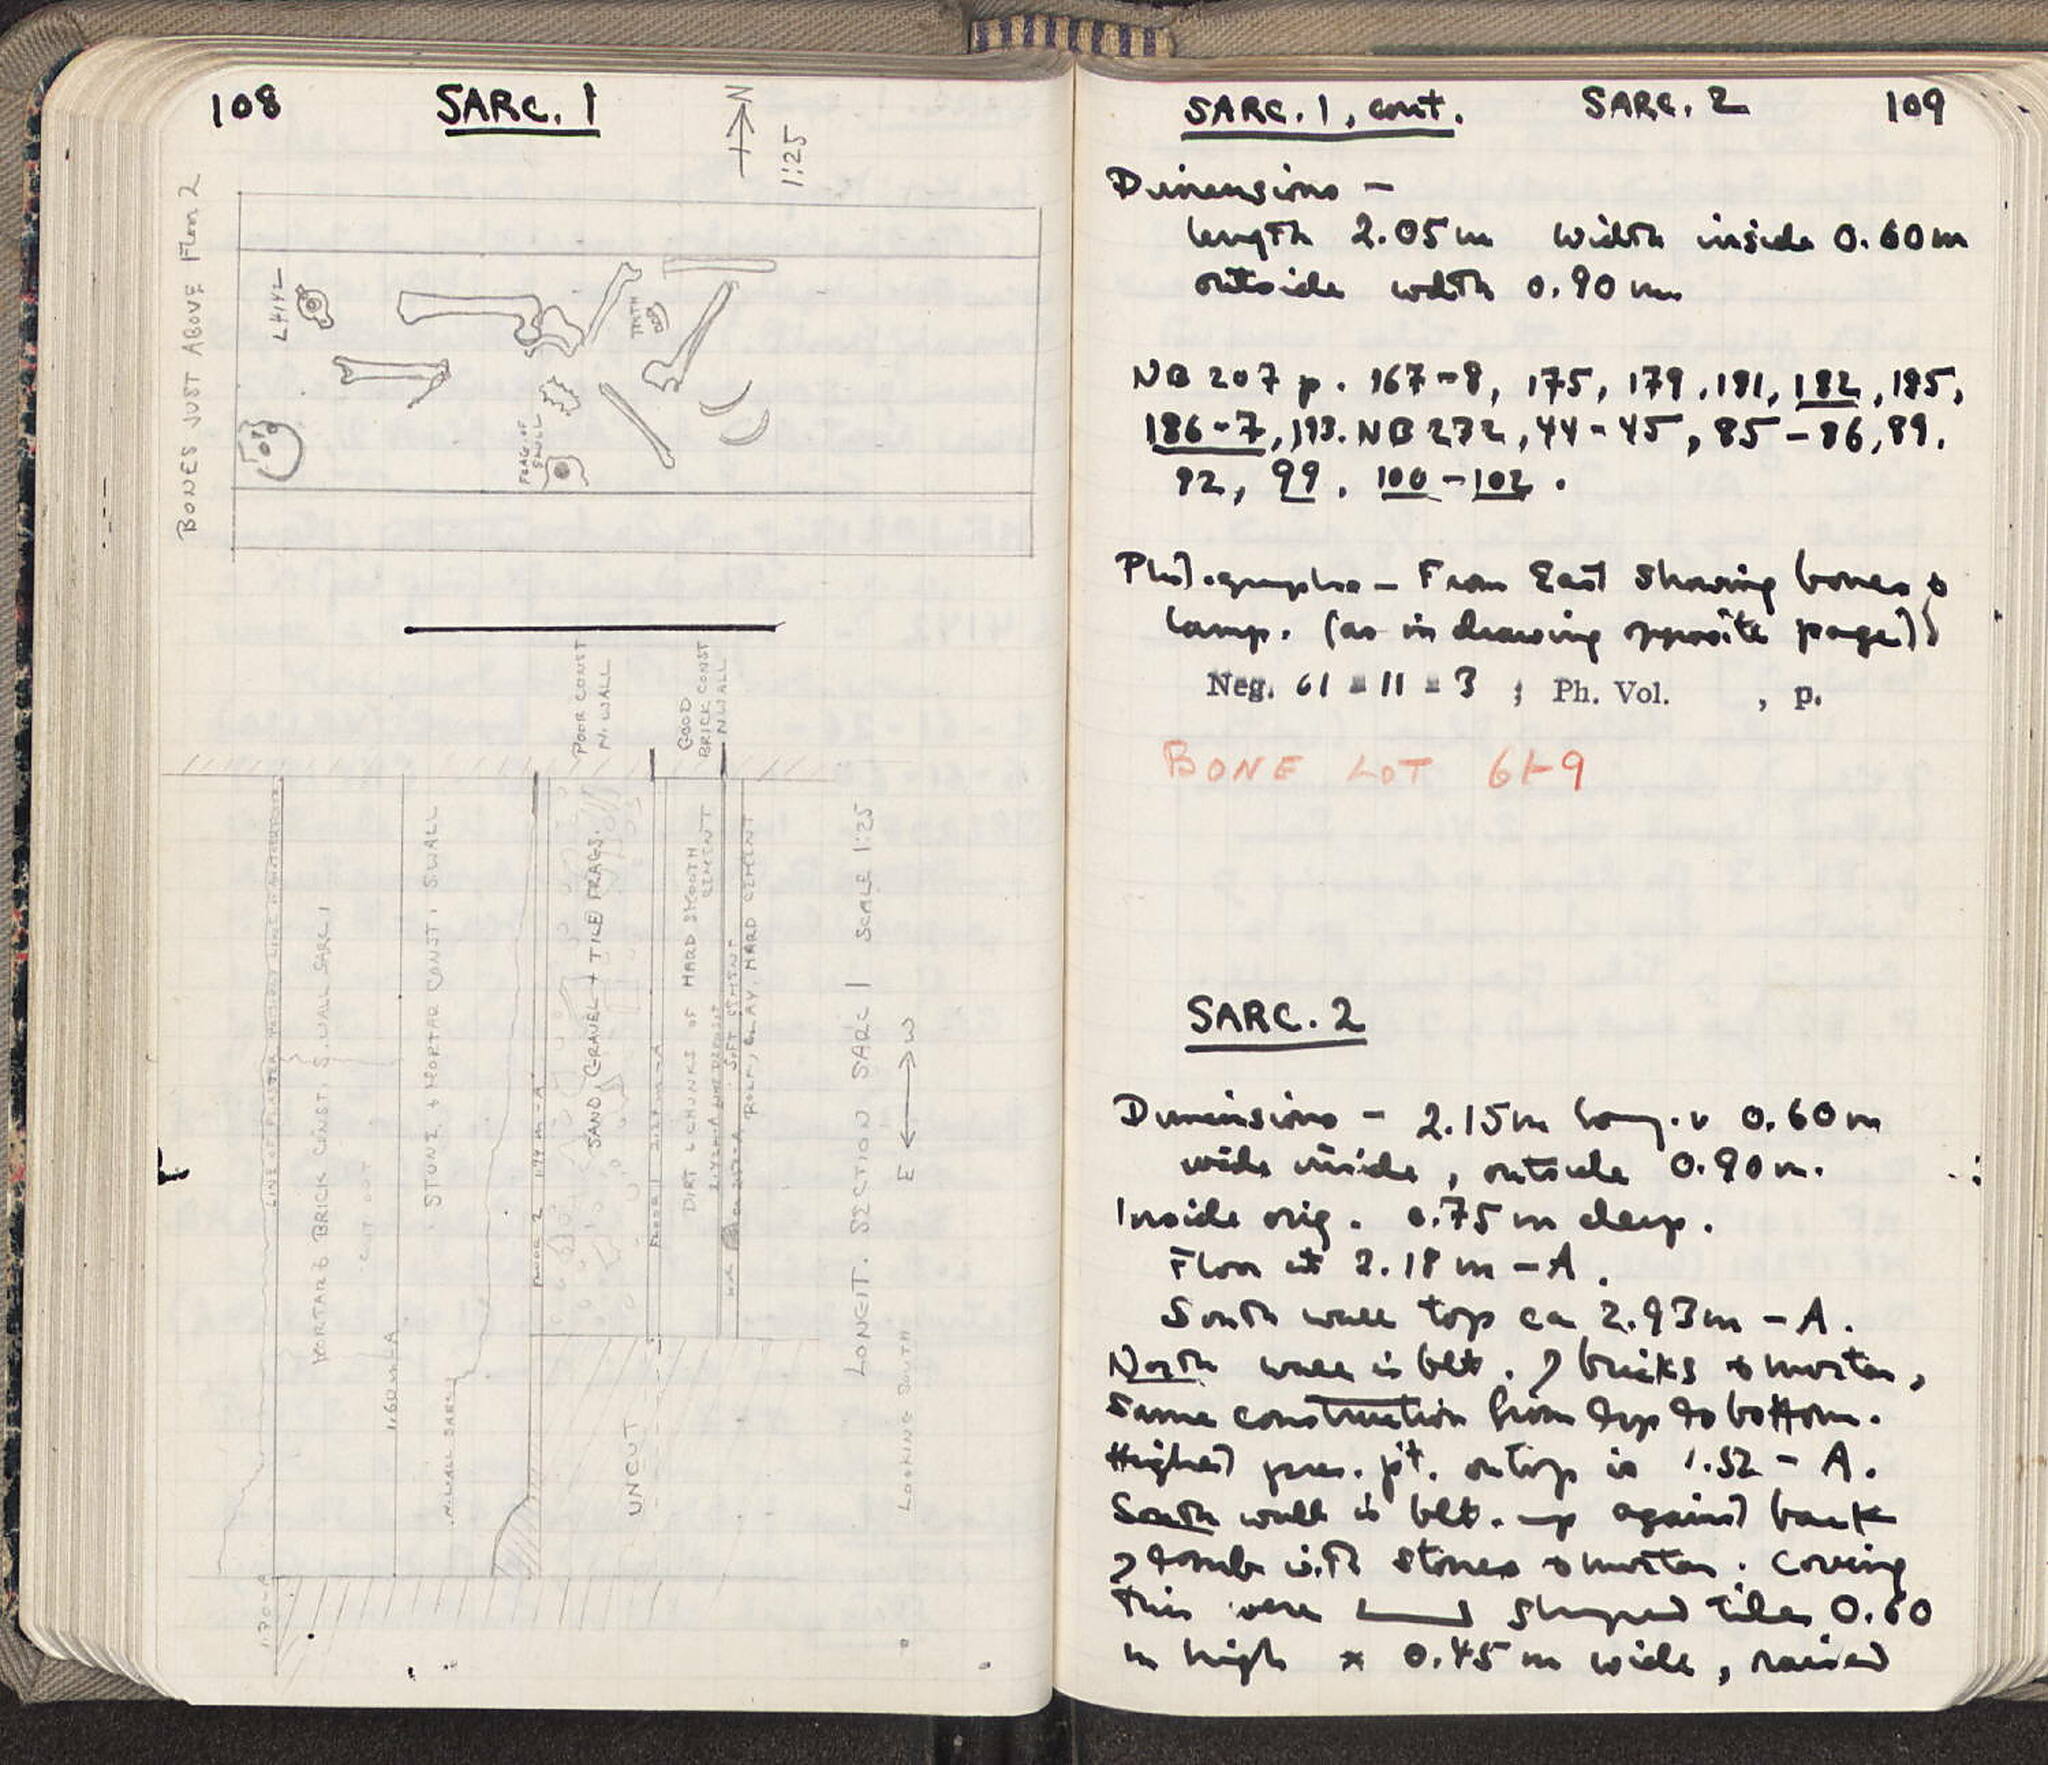 108
SARC. 1
N
1:25
BONES JUST ABOVE Floor 2
L4142
TEETH
FRAG. OF
SKULL
POOR CONST
N. WALL
GOOD
BRICK CONST
N WALL
MORTAR & BRICK CONST. S. WALL SARC 1
CUT OUT
STONE & MORTAR CONST. S WALL
1.60 m-A
N. WALL SARC 1
FLOOR 2
SAND, GRAVEL + TILE FRAGS.
FLOOR 1
DIRT & CHUNKS OF HARD SMOOTH
CEMENT
SOFT CEMENT
HARD CEMENT
UNCUT
LONGIT. SECTION SARC 1 SCALE 1:25
E W
LOOKING SOUTH
SARC. 1, cont. SARC. 2 109
Dimensions –
length 2.05 m width inside 0.60 m
outside width 0.90 m
NB 207 p. 167-8, 175, 179, 181, 182, 185,
186-7, 193. NB 232, 44-45, 85-86, 89.
92, 99, 100-102.
Photographs – From East showing bones &
lamp. (as in drawing opposite page)
Neg. 61-11-3 ; Ph. Vol. , p.
BONE LOT 61-9
SARC. 2
Dimensions – 2.15 m long. v 0.60 m
wide inside, outside 0.90 m.
Inside orig. 0.75 m deep.
Floor at 2.18 m – A.
South wall top ca 2.93 m – A.
North wall is blt. of bricks & mortar,
same construction from top to bottom.
Highest pres. pt. on top is 1.52 – A.
South wall is blt. up against back
of tomb with stones & mortar. Covering
this were shaped tiles 0.60
m high x 0.45 m wide, raised